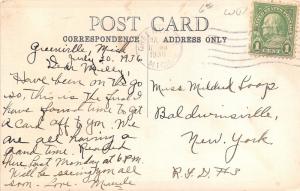 POST CARD
CORRESPONDENCE
ADDRESS ONLY
1 CENT 1
Greenville, Mich
July 20, 1936
Dear Milly,
Have been on the go
so, this is the first I
have found time to get
a card off to you. We
are all having a
grand time.
here last Monday at 6 P.M.
Will be seeing you all
soon. Love.
Miss Mildred Loop
Baldwinsville,
New York.
R.F.D. #3